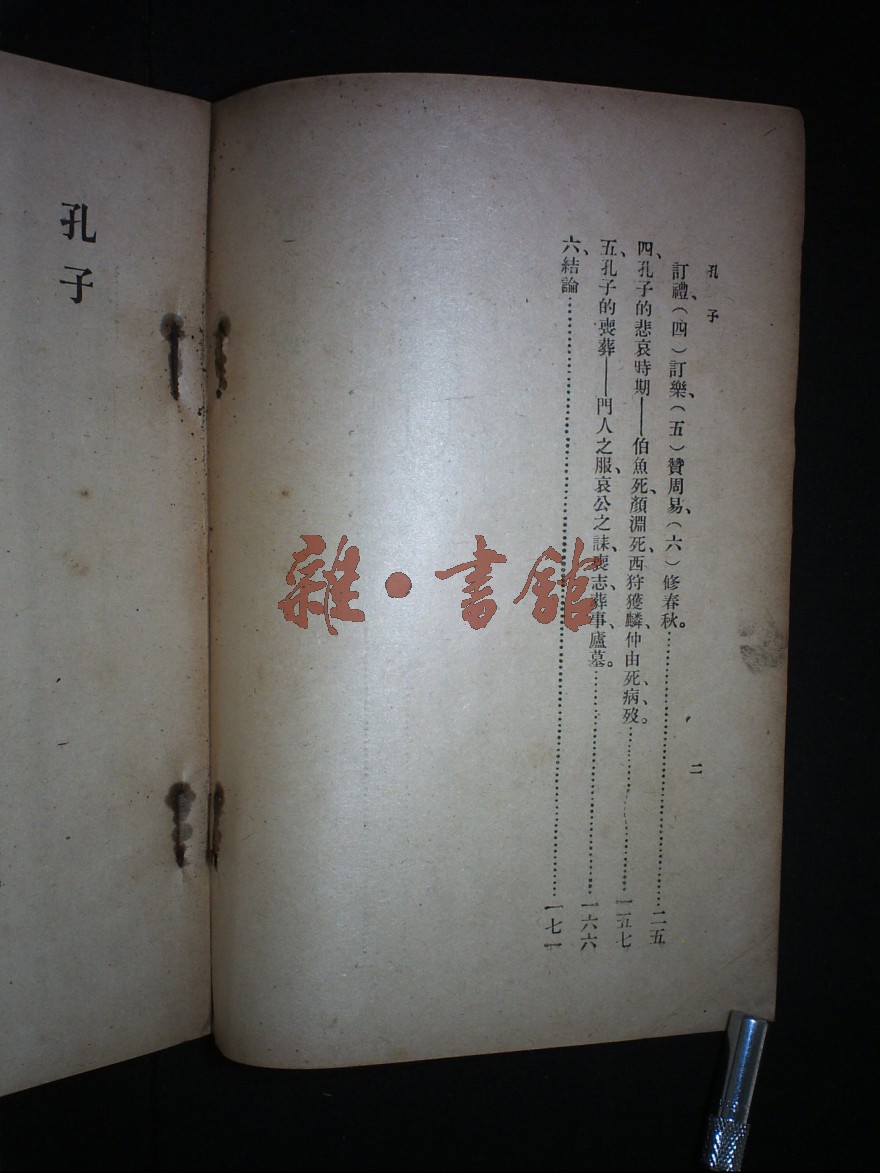 孔子
二
訂禮、(四)訂樂、(五)贊周易、(六)修春秋。……二五
四、孔子的悲哀時期——伯魚死、顏淵死、西狩獲麟、仲由死、病歿。……一五七
五、孔子的喪葬——門人之服、哀公之誄、喪志、葬事、廬墓。……一六六
六、結論……一七一
孔子
雜·書館